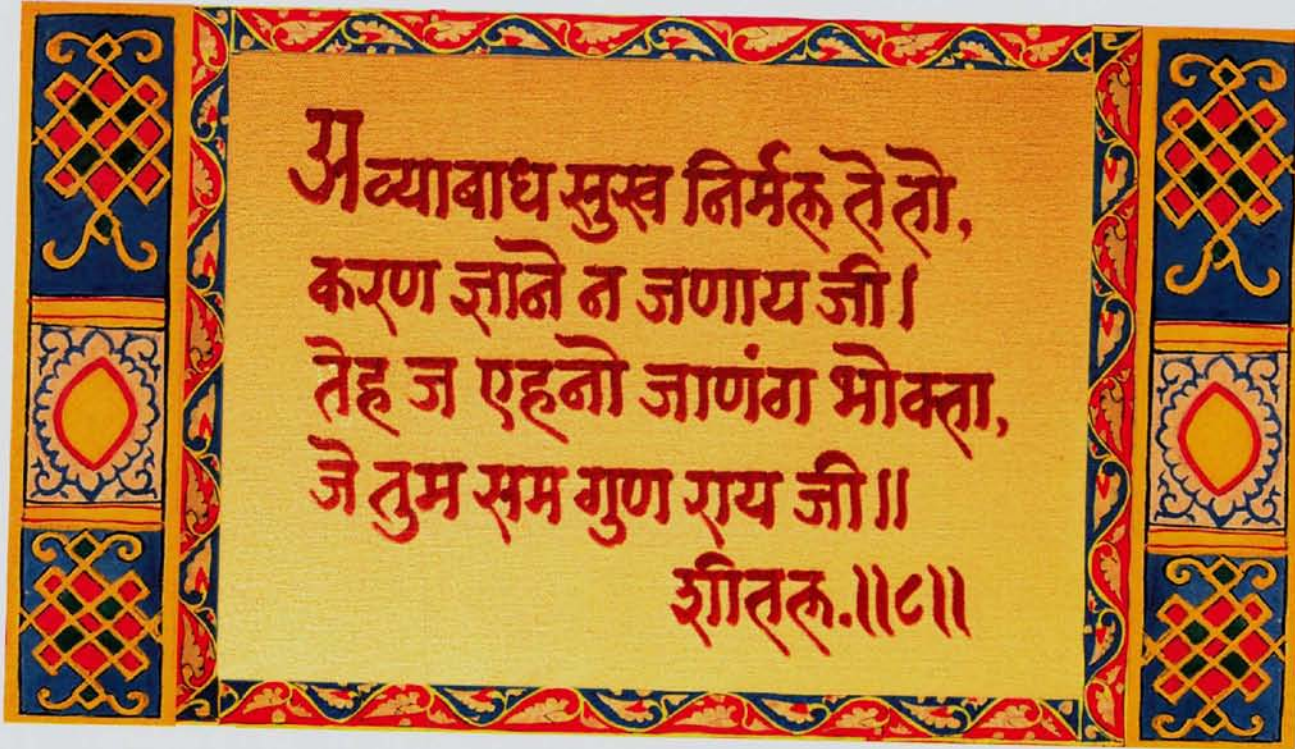 अव्याबाध सुख निर्मल ते तो,
करण ज्ञाने न जणाय जी।
तेह ज एहनो जाणंग भोक्ता,
जे तुम सम गुण राय जी॥
शीतल.॥८॥